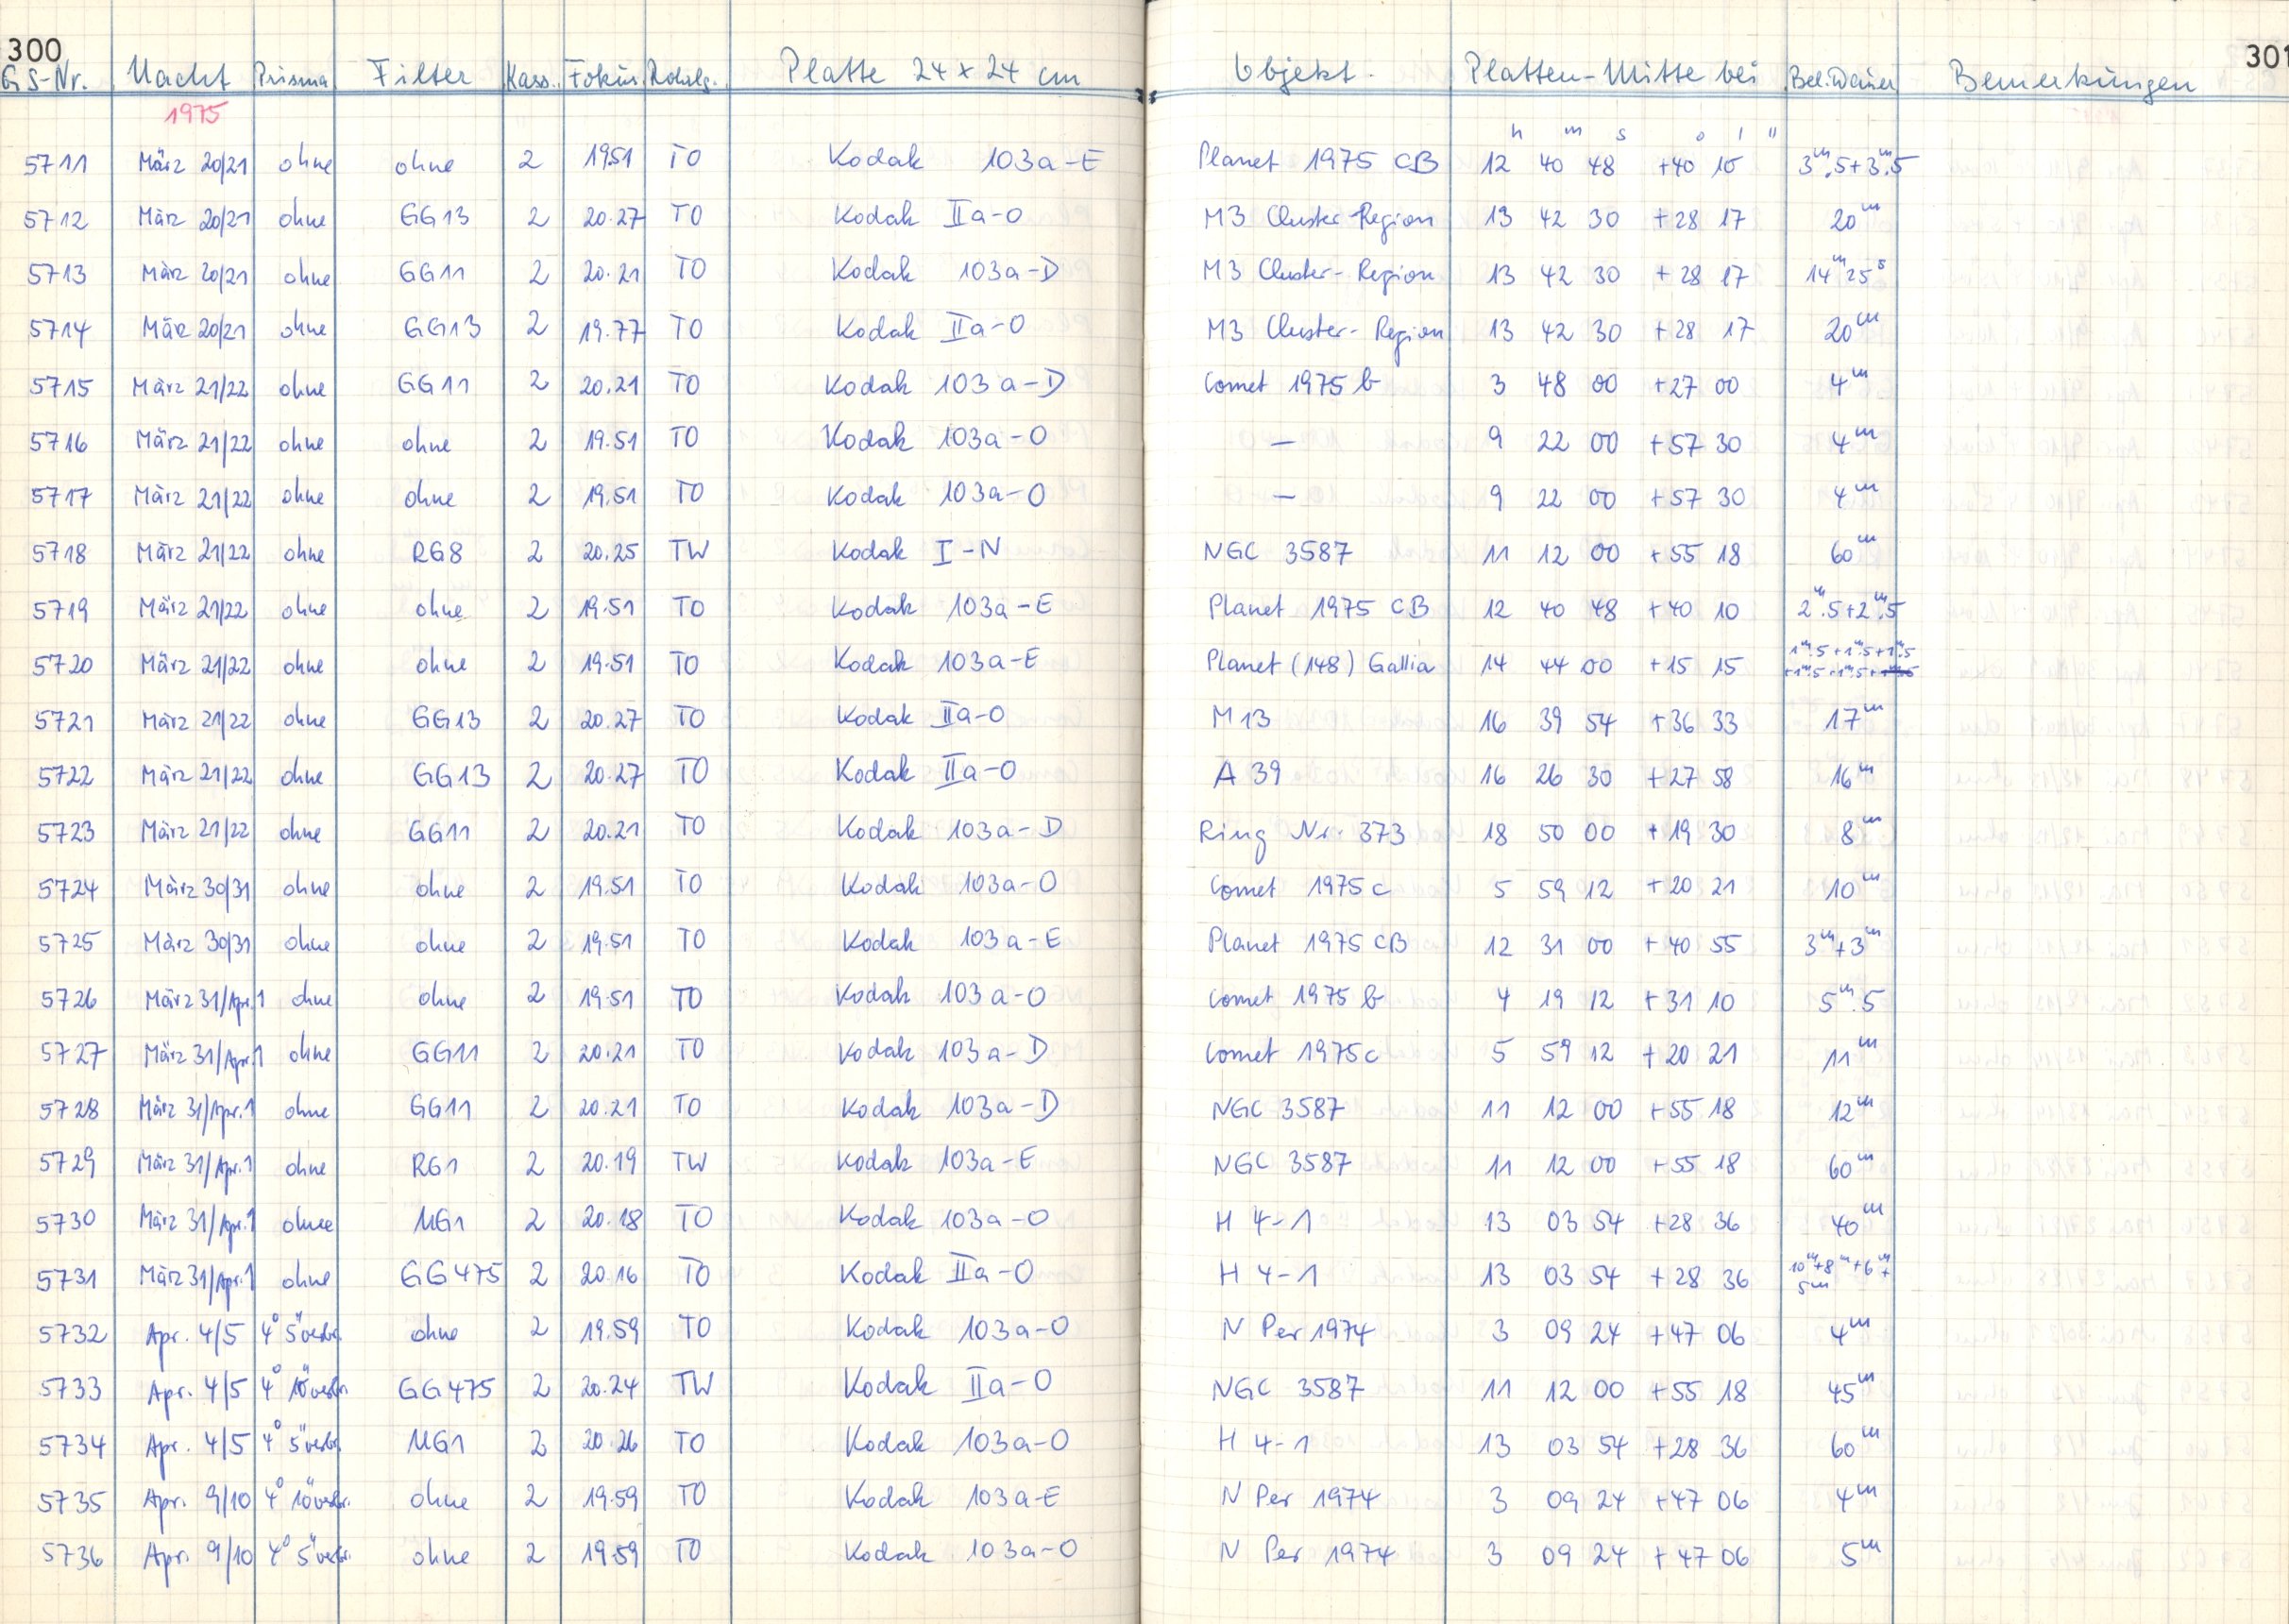 300 301
GS-Nr. Nacht Prisma Filter Kass. Fokus Rotalg. Platte 24 x 24 cm Objekt. Platten-Mitte bei Bel.Dauer Bemerkungen
1975
h m s ° ' "
5711 März 20/21 ohne ohne 2 19.51 TO Kodak 103a-E Planet 1975 CB 12 40 48 +40 10 3m.5+3m.5
5712 März 20/21 ohne GG13 2 20.27 TO Kodak IIa-O M3 Cluster Region 13 42 30 +28 17 20m
5713 März 20/21 ohne GG11 2 20.21 TO Kodak 103a-D M3 Cluster-Region 13 42 30 +28 17 14m25s
5714 März 20/21 ohne GG13 2 19.77 TO Kodak IIa-O M3 Cluster-Region 13 42 30 +28 17 20m
5715 März 21/22 ohne GG11 2 20.21 TO Kodak 103a-D Comet 1975 b 3 48 00 +27 00 4m
5716 März 21/22 ohne ohne 2 19.51 TO Kodak 103a-O — 9 22 00 +57 30 4m
5717 März 21/22 ohne ohne 2 19.51 TO Kodak 103a-O — 9 22 00 +57 30 4m
5718 März 21/22 ohne RG8 2 20.25 TW Kodak I-N NGC 3587 11 12 00 +55 18 60m
5719 März 21/22 ohne ohne 2 19.51 TO Kodak 103a-E Planet 1975 CB 12 40 48 +40 10 2m.5+2m.5
5720 März 21/22 ohne ohne 2 19.51 TO Kodak 103a-E Planet (148) Gallia 14 44 00 +15 15 1m.5+1m.5+1m.5
+1m.5+1m.5
5721 März 21/22 ohne GG13 2 20.27 TO Kodak IIa-O M13 16 39 54 +36 33 17m
5722 März 21/22 ohne GG13 2 20.27 TO Kodak IIa-O A 39 16 26 30 +27 58 16m
5723 März 21/22 ohne GG11 2 20.21 TO Kodak 103a-D Ring Nr. 373 18 50 00 +19 30 8m
5724 März 30/31 ohne ohne 2 19.51 TO Kodak 103a-O Comet 1975 c 5 59 12 +20 21 10m
5725 März 30/31 ohne ohne 2 19.51 TO Kodak 103a-E Planet 1975 CB 12 31 00 +40 55 3m+3m
5726 März 31/Apr.1 ohne ohne 2 19.51 TO Kodak 103a-O Comet 1975 b 4 19 12 +31 10 5m.5
5727 März 31/Apr.1 ohne GG11 2 20.21 TO Kodak 103a-D Comet 1975c 5 59 12 +20 21 11m
5728 März 31/Apr.1 ohne GG11 2 20.21 TO Kodak 103a-D NGC 3587 11 12 00 +55 18 12m
5729 März 31/Apr.1 ohne RG1 2 20.19 TW Kodak 103a-E NGC 3587 11 12 00 +55 18 60m
5730 März 31/Apr.1 ohne UG1 2 20.18 TO Kodak 103a-O H 4-1 13 03 54 +28 36 40m
5731 März 31/Apr.1 ohne GG475 2 20.16 TO Kodak IIa-O H 4-1 13 03 54 +28 36 10m+8m+6m+
5m
5732 Apr. 4/5 4° 5"verbr. ohne 2 19.59 TO Kodak 103a-O N Per 1974 3 09 24 +47 06 4m
5733 Apr. 4/5 4° 10"verbr. GG475 2 20.24 TW Kodak IIa-O NGC 3587 11 12 00 +55 18 45m
5734 Apr. 4/5 4° 5"verbr. UG1 2 20.26 TO Kodak 103a-O H 4-1 13 03 54 +28 36 60m
5735 Apr. 9/10 4° 10"verbr. ohne 2 19.59 TO Kodak 103a-E N Per 1974 3 09 24 +47 06 4m
5736 Apr. 9/10 4° 5"verbr. ohne 2 19.59 TO Kodak 103a-O N Per 1974 3 09 24 +47 06 5m